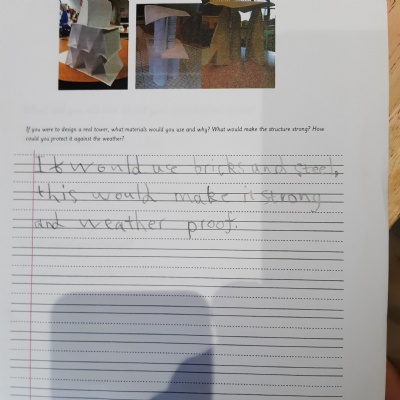 If you were to design a real tower, what materials would you use and why? What would make the structure strong? How
could you protect it against the weather?
It would use bricks and steel,
this would make it strong
and weather proof.